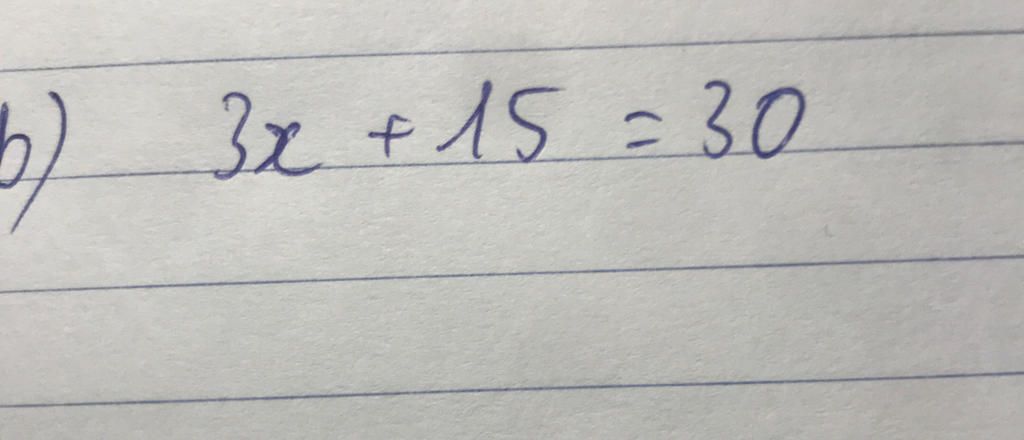 b) 3x + 15 = 30